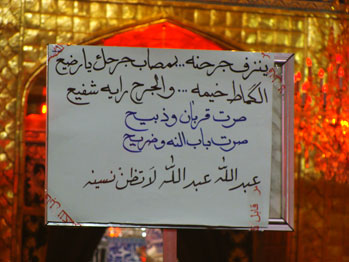 ينزف جرحنه... بمصاب جرحك يا رضيع
الكماط خيمه... والجرح رايه شفيع
صرت قربان وذبيح
صرت باب النه وضريح
عبد الله عبد الله لا تظن نسينه